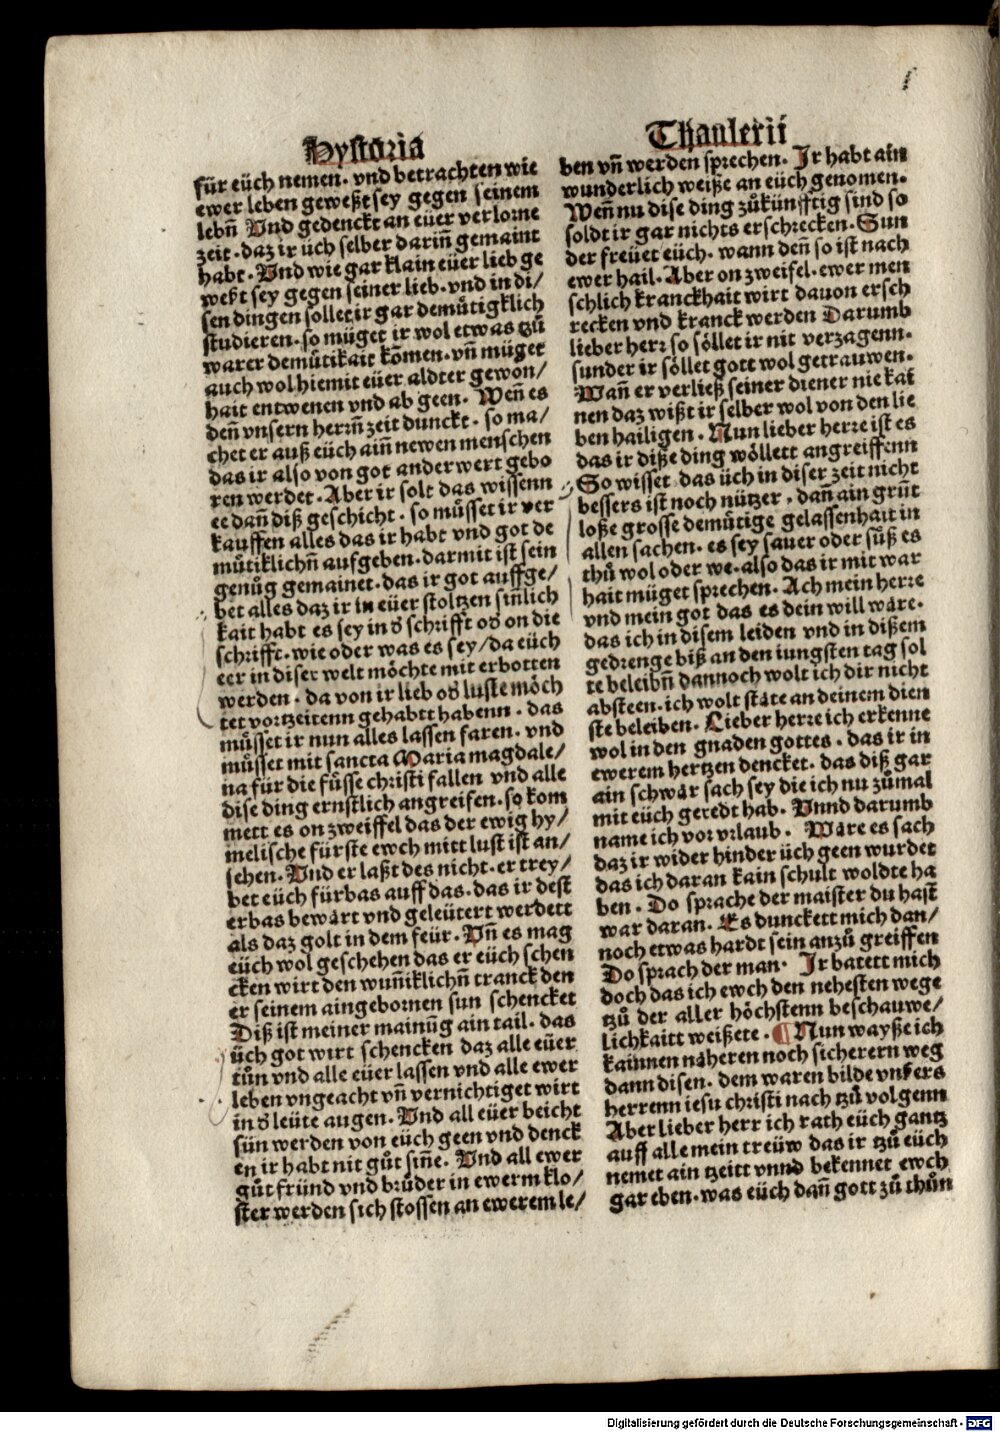 Hystoria
für eüch nemen. vnd betrachten wie
ewer leben geweßt sey gegen seinem
lebñ Vnd gedenckt an eüer verlorne
zeit. daz ir üch selber dariñ gemaint
habt. Vnd wie gar klain eüer lieb ge
weßt sey gegen seiner lieb. vnd in di/
sen dingen sollet ir gar demütigklich
studieren. so müget ir wol etwas tzů
warer demůtikait kōmen. vñ müget
auch wol hiemit eüer aldter gewon/
hait entwenen vnd ab geen. Weñ es
deñ vnsern herrñ zeit dunckt. so ma/
chet er auß eüch aiñ newen menschen
das ir also von got ander wert gebo
ren werdet. Aber ir solt das wissenn
ee dañ diß geschicht. so můsset ir ver
kauffen alles das ir habt vnd got de
můtiklichñ aufgeben. darmit ist sein
genůg gemainet. das ir got auffge/
bet alles daz ir in eüer stoltzen siñlich
kait habt es sey in d̕ schrifft od̕ on die
schrifft. wie oder was es sey/da eüch
eer in diser welt möchte mit erbotten
werden. da von ir lieb od̕ luste möch
tet vortzeitenn gehabtt habenn. das
müsset ir nun alles lassen faren. vnd
můsset mit sancta Maria magdale/
na für die fůsse christi fallen vnd alle
dise ding ernstlich angreifen. so kom
mett es on zweiffel das der ewig hy/
melische fürste ewch mitt lust ist an/
sehen. Vnd er laßt des nicht. er trey/
bet eüch fürbas auff das. das ir dest
erbas bewårt vnd geleütert werdett
als daz golt in dem feür. Vñ es mag
eüch wol geschehen das er eüch schen
cken wirt den wuñiklichñ tranck den
er seinem aingebornen sun schencket
Diß ist meiner mainūg ain tail. das
üch got wirt schencken daz alle eüer
tůn vnd alle eüer lassen vnd alle ewer
leben vngeacht vñ vernichtiget wirt
in d̕ leüte augen. Vnd all eüer beicht
sün werden von eüch geen vnd denck
en ir habt nit gůt siñe. Vnd all ewer
gůt fründ vnd brůder in ewerm klo/
ster werden sich stossen an ewerem le/
Thaulerii
ben vñ werden sprechen. Ir habt ain
wunderlich weiße an eüch genomen.
Weñ nu dise ding zůkünfftig sind so
soldt ir gar nichts erschrecken. Sun
der freüet eüch. wann deñ so ist nach
ewer hail. Aber on zweifel. ewer men
schlich kranckhait wirt dauon ersch
recken vnd kranck werden Darumb
lieber herr so söllet ir nit verzagenn.
sunder ir söllet gott wol getrauwen.
Wañ er verließ seiner diener nie kai
nen daz wißt ir selber wol von den lie
ben hailigen. Nun lieber herre ist es
das ir diße ding wöllett angreiffenn
So wisset das üch in diser zeit nicht
bessers ist noch nützer, dañ ain grūt
loße grosse demütige gelassenhait in
allen sachen. es sey sauer oder sůß es
thů wol oder we. also das ir mit war
hait müget sprechen. Ach mein herre
vnd mein got das es dein will wåre.
das ich in disem leiden vnd in dißem
gedrenge biß an den iungsten tag sol
te beleibñ dannoch wolt ich dir nicht
absteen. ich wolt ståte an deinem dien
ste beleiben. Lieber herre ich erkenne
wol in den gnaden gottes. das ir in
ewerem hertzen dencket. das diß gar
ain schwår sach sey die ich nu zůmal
mit eüch geredt hab. Vnnd darumb
name ich vor vrlaub. Wåre es sach
daz ir wider hinder üch geen wurdet
das ich daran kain schult woldte ha
ben. Do sprache der maister du hast
war daran. Es dunckett mich dan/
noch etwas hardt sein anzů greiffen
Do sprach der man. Ir batett mich
doch das ich ewch den nehesten wege
tzů der aller höchstenn beschauwe/
lichkaitt weißete. ¶ Nun wayße ich
kainnen nåheren noch sicherern weg
dann disen. dem waren bilde vnßers
herrenn iesu christi nach tzů volgenn
Aber lieber herr ich rath eüch gantz
auff alle mein treüw das ir tzů eüch
nemet ain tzeitt vnnd bekennet ewch
gar eben. was eüch dañ gott zů thůn
Digitalisierung gefördert durch die Deutsche Forschungsgemeinschaft - DFG